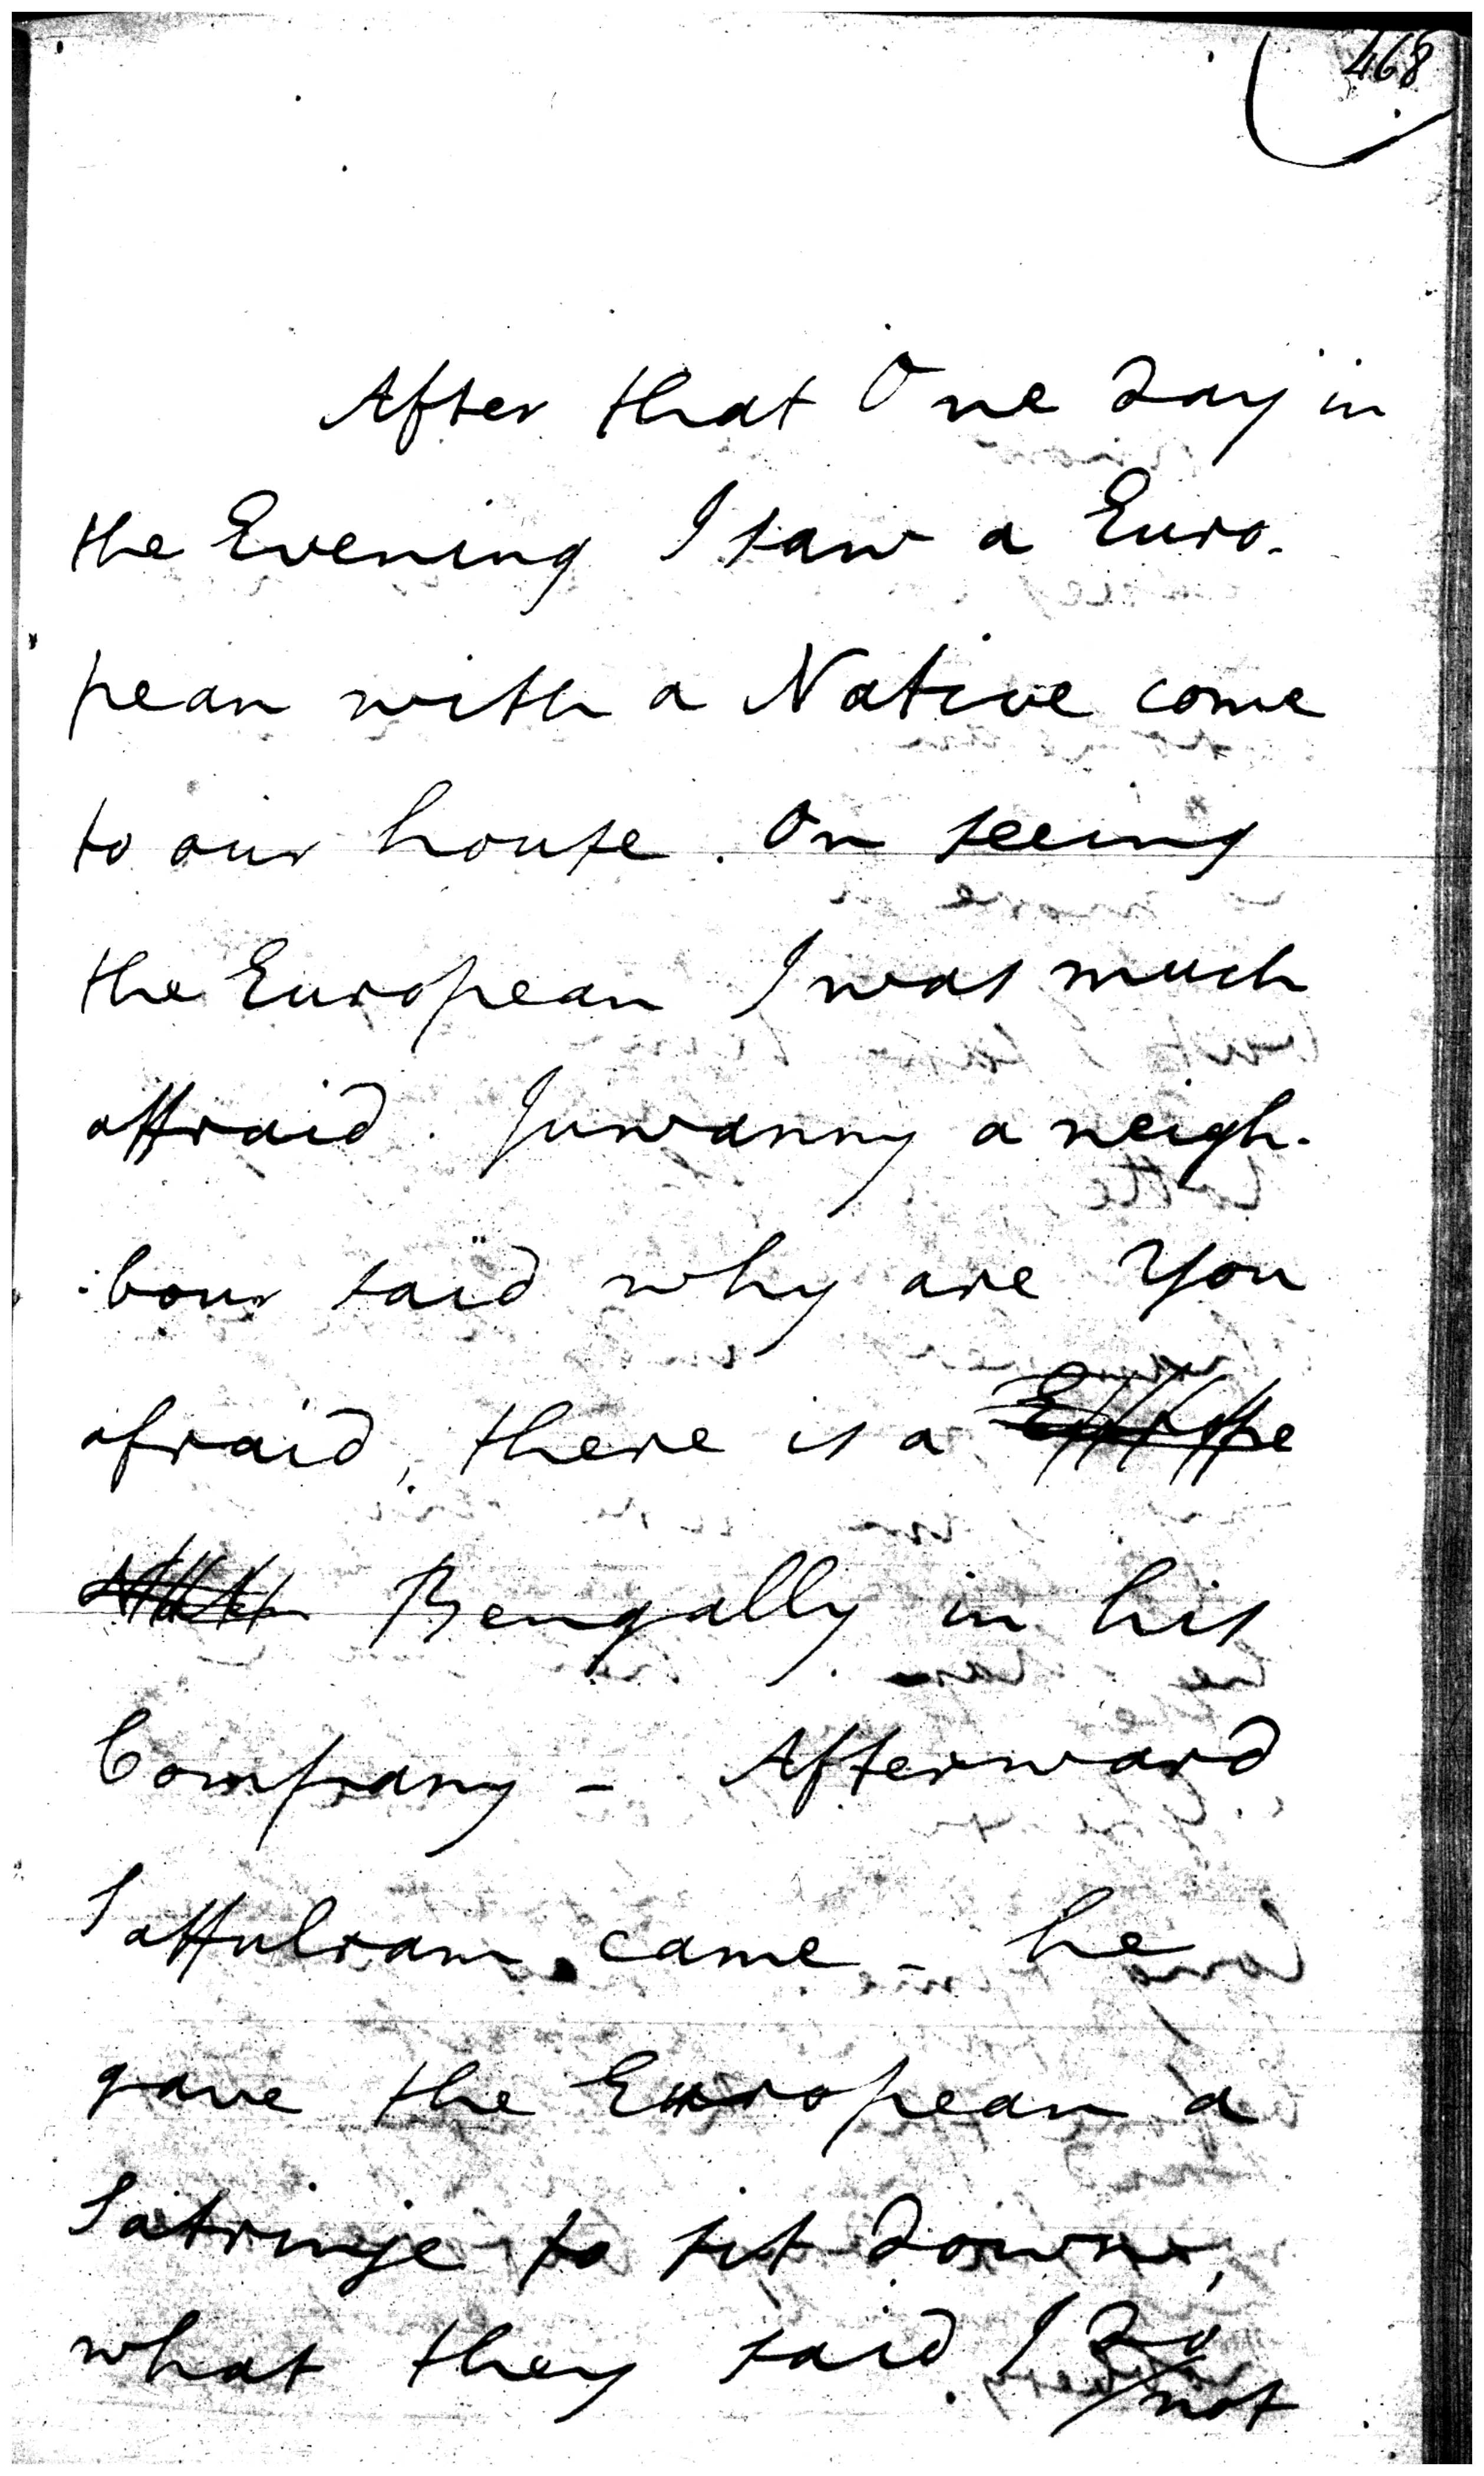 468
After that One day in
the Evening I saw a Euro-
pean with a Native come
to our house. On seeing
the European I was much
affraid. Juwanny a neigh-
:bour said why are You
afraid, there is a
Bengally in his
Company - Afterward
came - he
gave the European a
Satringe to sit down,
what they said I do
not